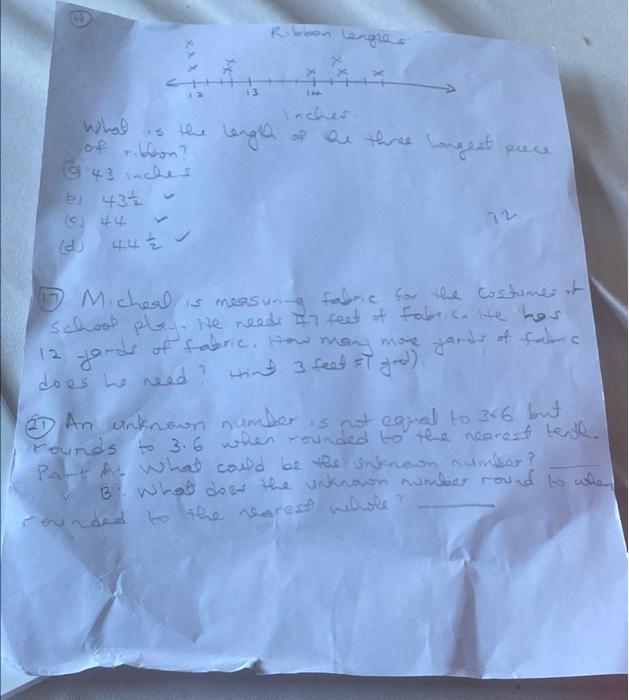 Ribbon Lengths
x
x x x
x x x x x
12 13 14
Inches
What is the length of the three longest piece
of ribbon?
(a) 43 inches
(b) 43 1/2 ✓
(c) 44 ✓
(d) 44 1/2 ✓
12
17 Micheal is measuring fabric for the costumes at
school play. He needs 47 feet of fabric. He has
12 yards of fabric. How many more yards of fabric
does he need? Hint 3 feet = 1 yrd).
21 An unknown number is not equal to 3.6 but
rounds to 3.6 when rounded to the nearest tenth.
Part A: What could be the unknown number? ____
B: What does the unknown number round to when
rounded to the nearest whole? ____